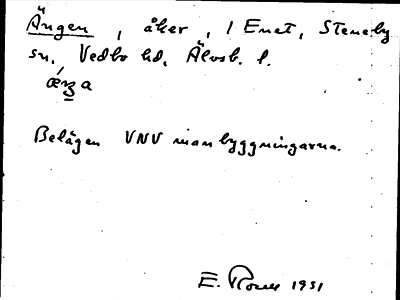 Ängen, åker, 1 Enet, Steneby
sn, Vedbo hd, Älvsb. l.
Belägen VNV manbyggningarna.
E. 1931